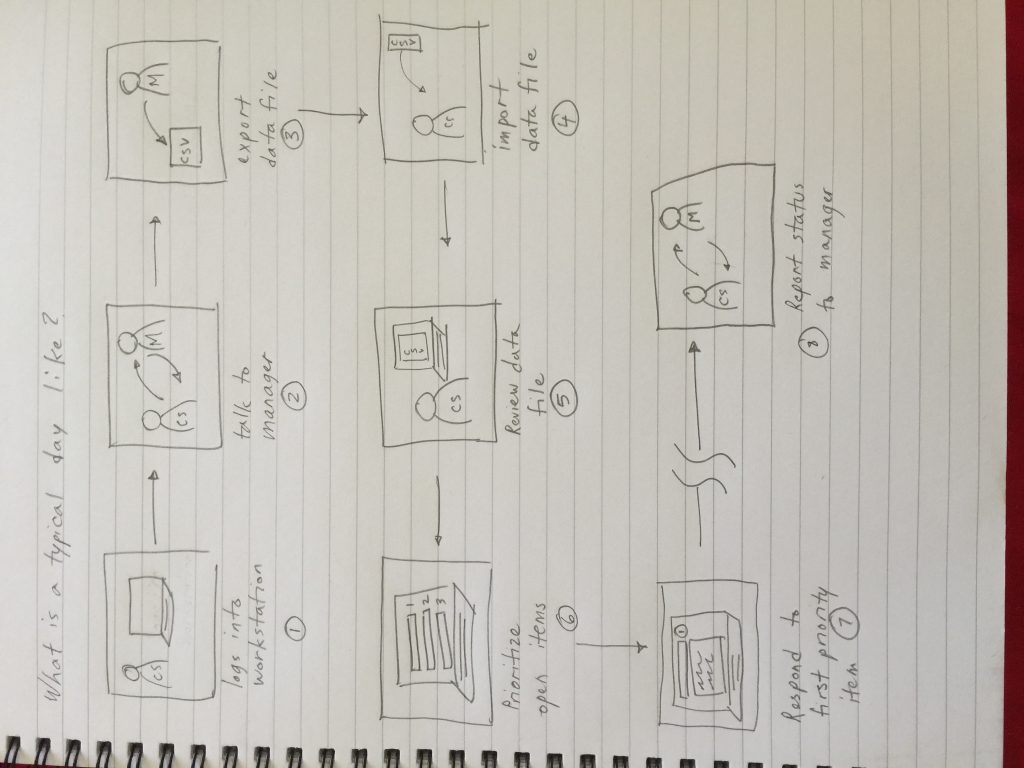 What is a typical day like?
CS
logs into
workstation
①
CS
M
talk to
manager
②
CSV
M
export
data file
③
CS
CSV
import
data file
④
CS
CSV
Review data
file
⑤
1
2
3
Prioritize
open items
⑥
1
Respond to
first priority
item ⑦
CS
M
⑧ Report status
to manager